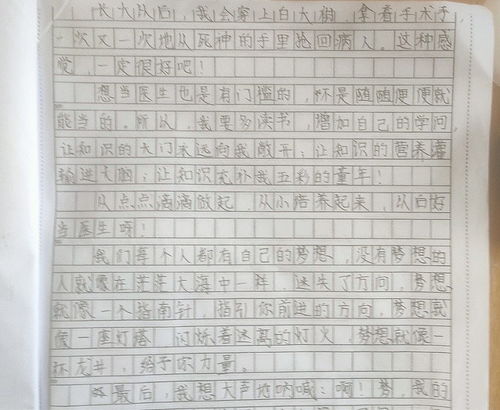 长大以后，我会穿上白大褂，拿着手术
一次又一次地从死神的手里抢回病人。这种感
觉，一定很好吧！
想当医生也是有门槛的，不是随随便便就
能当的。所以，我要多读书，增加自己的学问
让知识的大门永远向我敞开；让知识的营养灌
输进大脑；让知识充补我五彩的童年！
从点点滴滴做起，从小培养起来，以后好
当医生呀！
我们每个人都有自己的梦想，没有梦想的
人就像在茫茫大海中一样，迷失了方向，梦想
就像一个指南针，指引你前进的方向，梦想就
像一座灯塔，闪烁着迷离的灯火，梦想就像一
杯龙井，给予你力量。
最后，我想大声地呐喊：啊！梦，我的